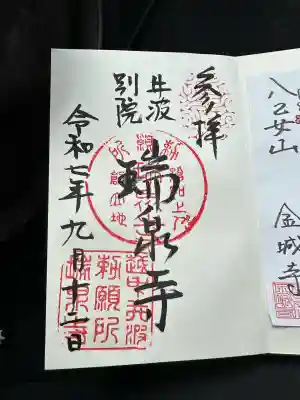 八乙女山
金城寺
参拝
井波
別院
瑞泉寺
令和七年九月十三日
越中井波
勅願所
瑞泉寺